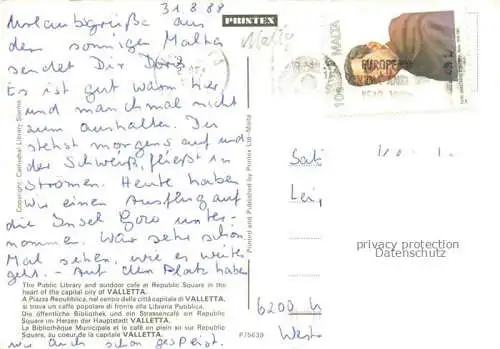 31.8.88
Urlaubsgrüße aus
dem sonnigen Malta
sendet Dir Doris
Es ist gut warm hier
und manchmal nicht
zum aushalten. Du
stehst morgens auf und
der Schweiß fließt in
Strömen. Heute haben
wir einen Ausflug auf
die Insel Gozo unter-
nommen. War sehr schön
Mal sehen, wie es weiter
geht. - Auf dem Platz haben
The Public Library and outdoor cafe at Republic Square in the
heart of the capital city of VALLETTA.
A Piazza Republica, nel centro della città capitale di VALLETTA,
si trova un caffe popolare di fronte alla Libraria Pubblica.
Die öffentliche Bibliothek und ein Strassencafé am Republic
Square im Herzen der Hauptstadt VALLETTA.
La Bibliothèque Municipale et le café en plein air sur Republic
Square, au coeur de la capitale VALLETTA.
wir auch schon gespeist.
Copyright: Cathedral Library Sienna
PRINTEX
Printed and Published by Printex Ltd-Malta
P/5639
MALTA
EUROPE
6200
privacy protection
Datenschutz